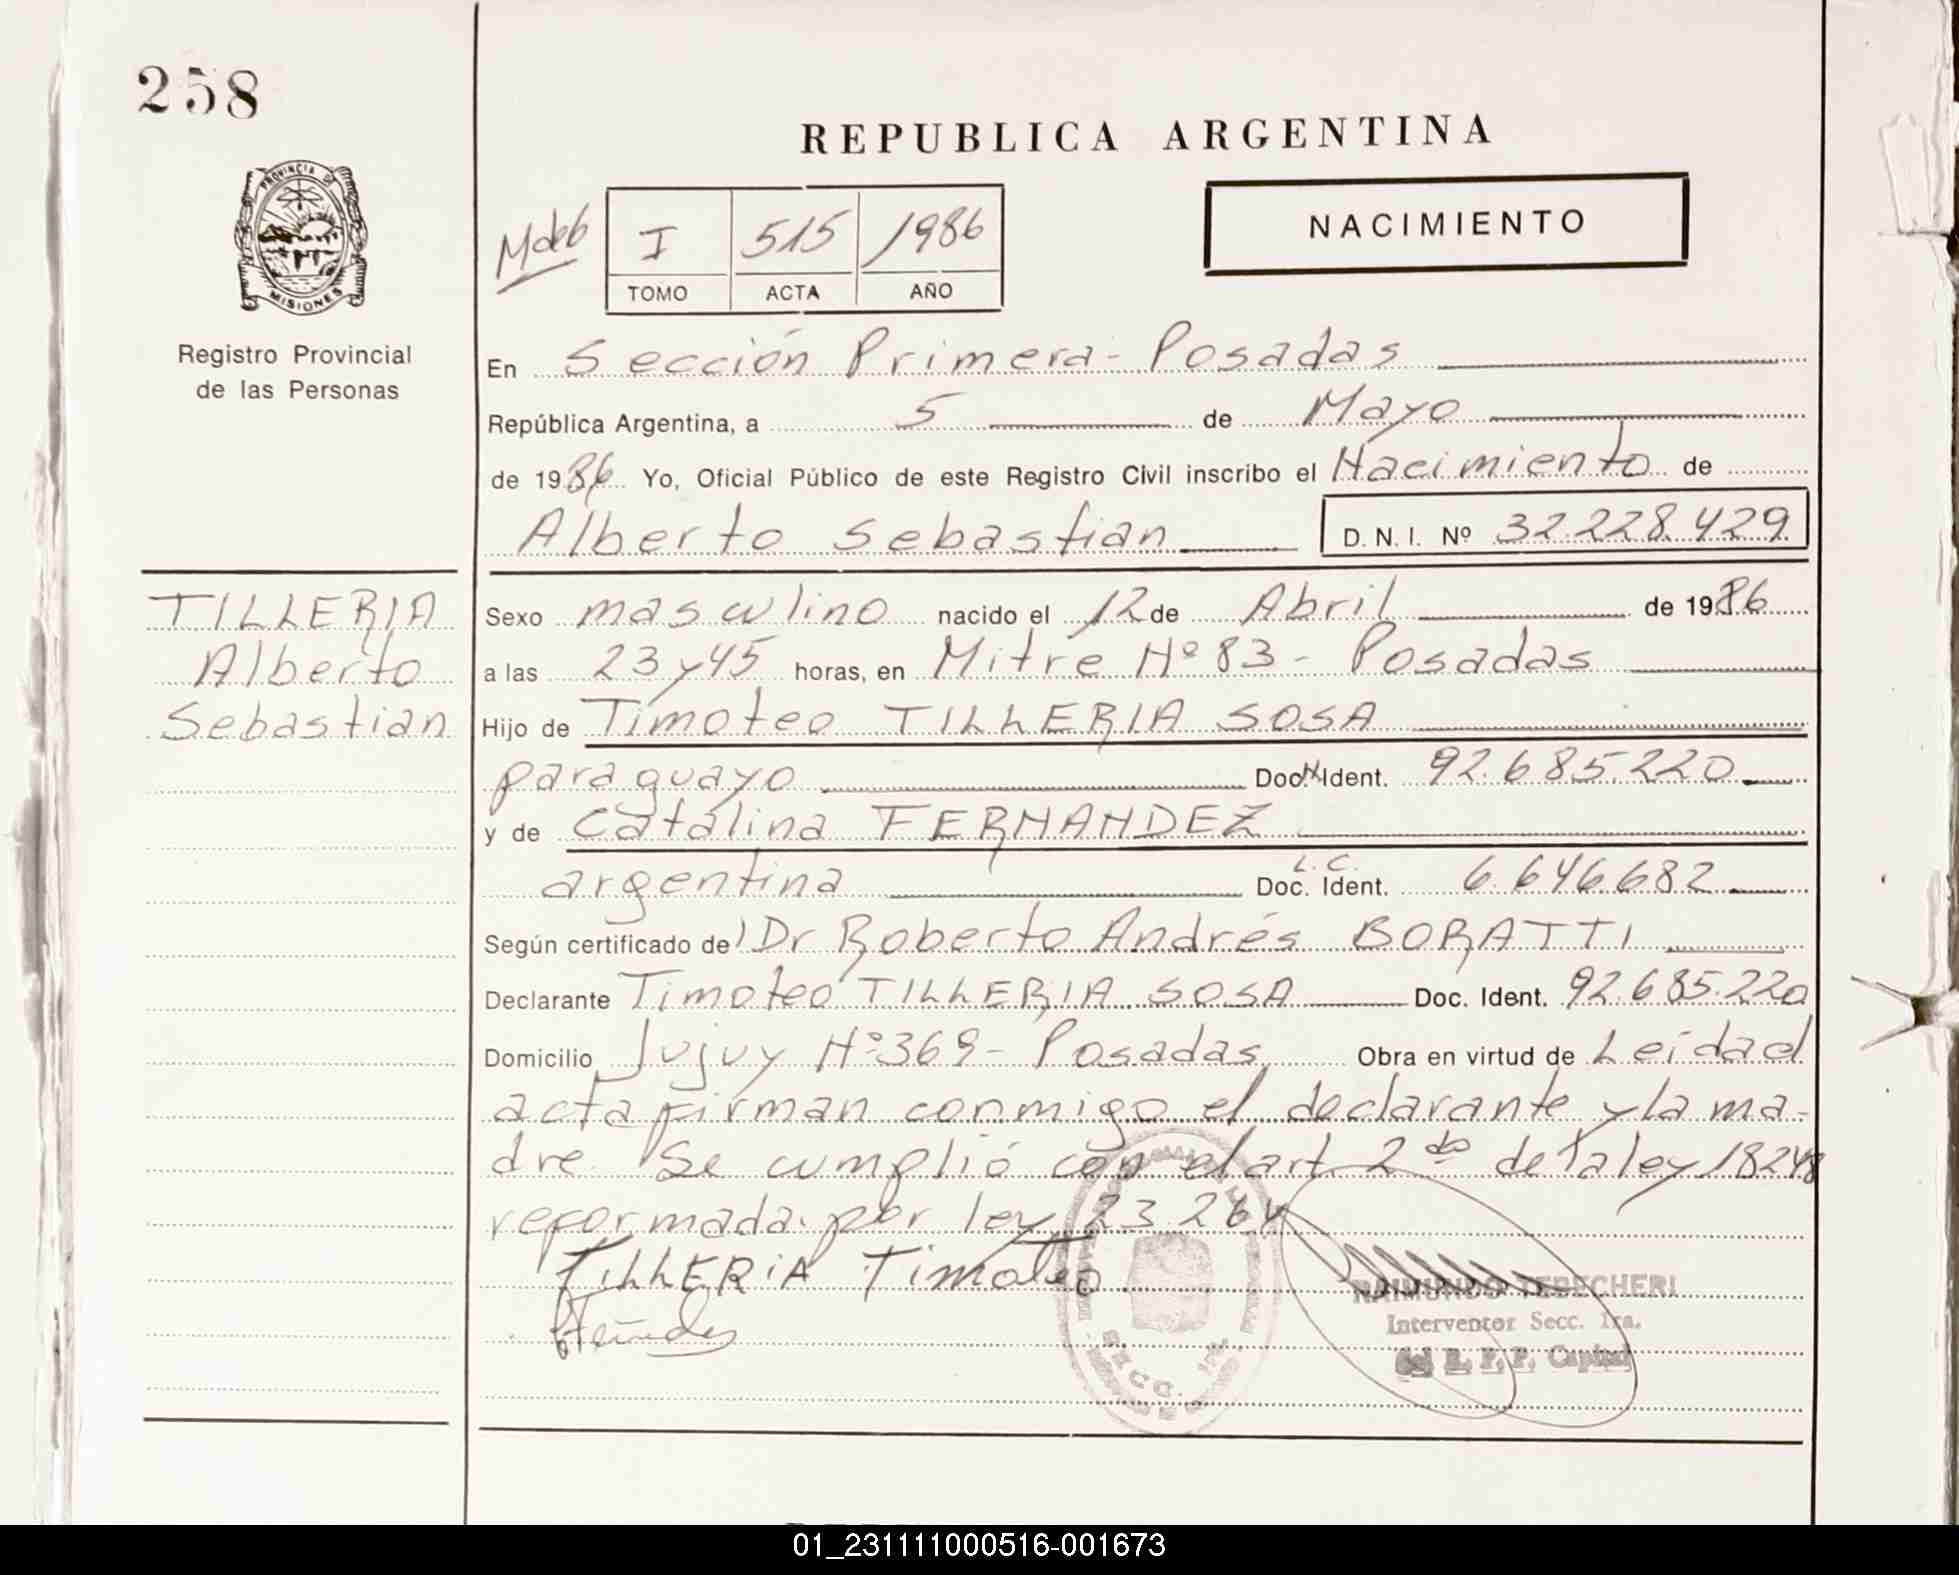 258
REPUBLICA ARGENTINA
PROVINCIA DE
MISIONES
Registro Provincial
de las Personas
I 515 1986
TOMO ACTA AÑO
NACIMIENTO
En Sección Primera - Posadas
República Argentina, a 5 de Mayo
de 1986 Yo, Oficial Público de este Registro Civil inscribo el Nacimiento de
Alberto Sebastian D. N. I. Nº 32.228.429
TILLERIA
Alberto
Sebastian
Sexo masculino nacido el 12 de Abril de 1986
a las 23 y 45 horas, en Mitre Nº 83 - Posadas
Hijo de Timoteo TILLERIA SOSA
paraguayo Doc. Ident. 92.685.220
y de Catalina FERNANDEZ
L.C.
argentina Doc. Ident. 6.646.682
Según certificado de Dr Roberto Andrés BORATTI
Declarante Timoteo TILLERIA SOSA Doc. Ident. 92.685.220
Domicilio Jujuy Nº 369 - Posadas Obra en virtud de Leida el
acta firman conmigo el declarante y la ma-
dre. Se cumplió con el art. 2do de la ley 18248
reformada por ley 23.264
TILLERIA Timoteo
RAIMUNDO TEBECHERI
Interventor Secc. 1ra.
del R. P. P. Capital
SECC. 1ra.
01_231111000516-001673